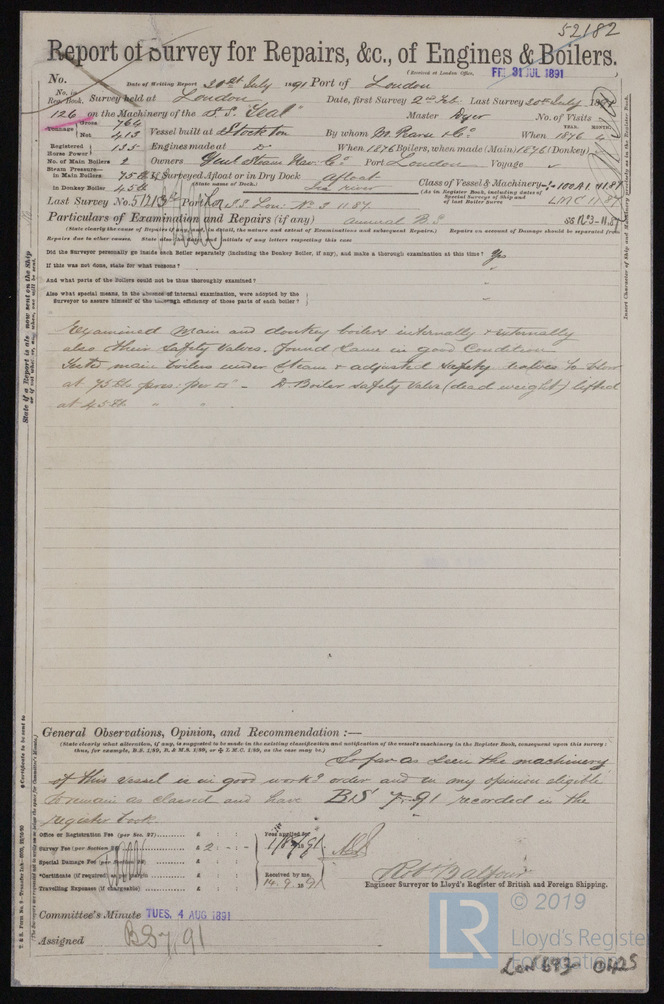 52182
Report of Survey for Repairs, &c., of Engines & Boilers.
(Received at London Office, FRI. 31 JUL 1891
No. Date of Writing Report 20th July 1891 Port of London
No. in Reg. Book. Survey held at London Date, first Survey 2nd Feb. Last Survey 20th July 1891
126 on the Machinery of the S.S. "Teal" Master Dyer No. of Visits
Tonnage Gross 764 Net 413 Vessel built at Stockton By whom When 1876 YEAR. MONTH. 4
Registered Horse Power 135 Engines made at Do When 1876 Boilers, when made (Main) 1876 (Donkey)
No. of Main Boilers 2 Owners Genl Steam Nav. Co. Port London Voyage
Steam Pressure— in Main Boilers 75 lb If Surveyed Afloat or in Dry Dock Afloat Class of Vessel & Machinery 100A1 11.87
(State name of Dock.) in river (As in Register Book, including dates of Special Surveys of Ship and of last Boiler Surve
in Donkey Boiler 45 lb LMC 11.87
Last Survey No. Port S.S. Lon: No 3 11 87. SS No 3-11.87
Particulars of Examination and Repairs (if any) Annual B.S
(State clearly the cause of Repairs if any, and in detail, the nature and extent of Examinations and subsequent Repairs.) Repairs on account of Damage should be separated from
Repairs due to other causes. State also initials of any letters respecting this case
Did the Surveyor personally go inside each Boiler separately (including the Donkey Boiler, if any), and make a thorough examination at this time? Yes
If this was not done, state for what reasons?
And what parts of the Boilers could not be thus thoroughly examined?
Also what special means, in the absence of internal examination, were adopted by the
Surveyor to assure himself of the thorough efficiency of those parts of each boiler?
Examined Main and donkey boilers internally & externally
also their safety valves. found same in good condition
Tested main boilers under steam & adjusted safety valves to blow
at 75 lbs pres: per □" - D. Boiler safety valve (dead weight) lifted
at 45 lb " "
General Observations, Opinion, and Recommendation :—
(State clearly what alteration, if any, is suggested to be made in the existing classification and notification of the vessel's machinery in the Register Book, consequent upon this survey:
thus, for example, B.S. 1/89, R. & M.S. 1/89, or L.M.C. 1/89, as the case may be.)
So far as seen the machinery
of this vessel is in good workg order and in my opinion eligible
to remain as classed and have BS 7.91 recorded in the
register book.
Office or Registration Fee (per Sec. 27) £ : :
Survey Fee (per Section 28) £ 2 : - : -
Special Damage Fee (per Section 28) £ : :
Certificate (if required) £ : :
Travelling Expenses (if chargeable) £ : :
Fees applied for
Received by me,
14.9.1891
Robt Balfour
Engineer Surveyor to Lloyd's Register of British and Foreign Shipping.
Committee's Minute TUES. 4 AUG 1891
Assigned BS 7.91
© 2019
LR
Lloyd's Register
Foundation
Lon 693- 0425